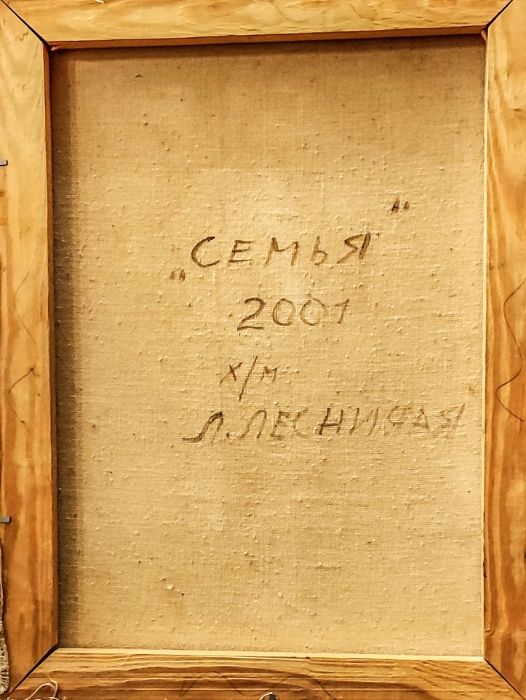 „СЕМЬЯ"
2001
х/м
Л. ЛЕСНИЦКАЯ